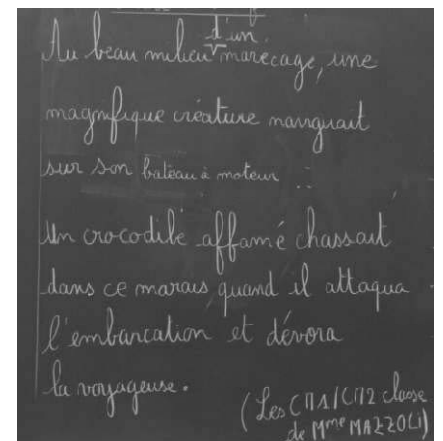 Au beau milieu d'un marecage, une
magnifique créature naviguait
sur son bateau à moteur :
Un crocodile affamé chassait
dans ce marais quand il attaqua
l'embarcation et dévora
la voyageuse.
(Les CM1/CM2 classe
de Mme MAZZOLI)